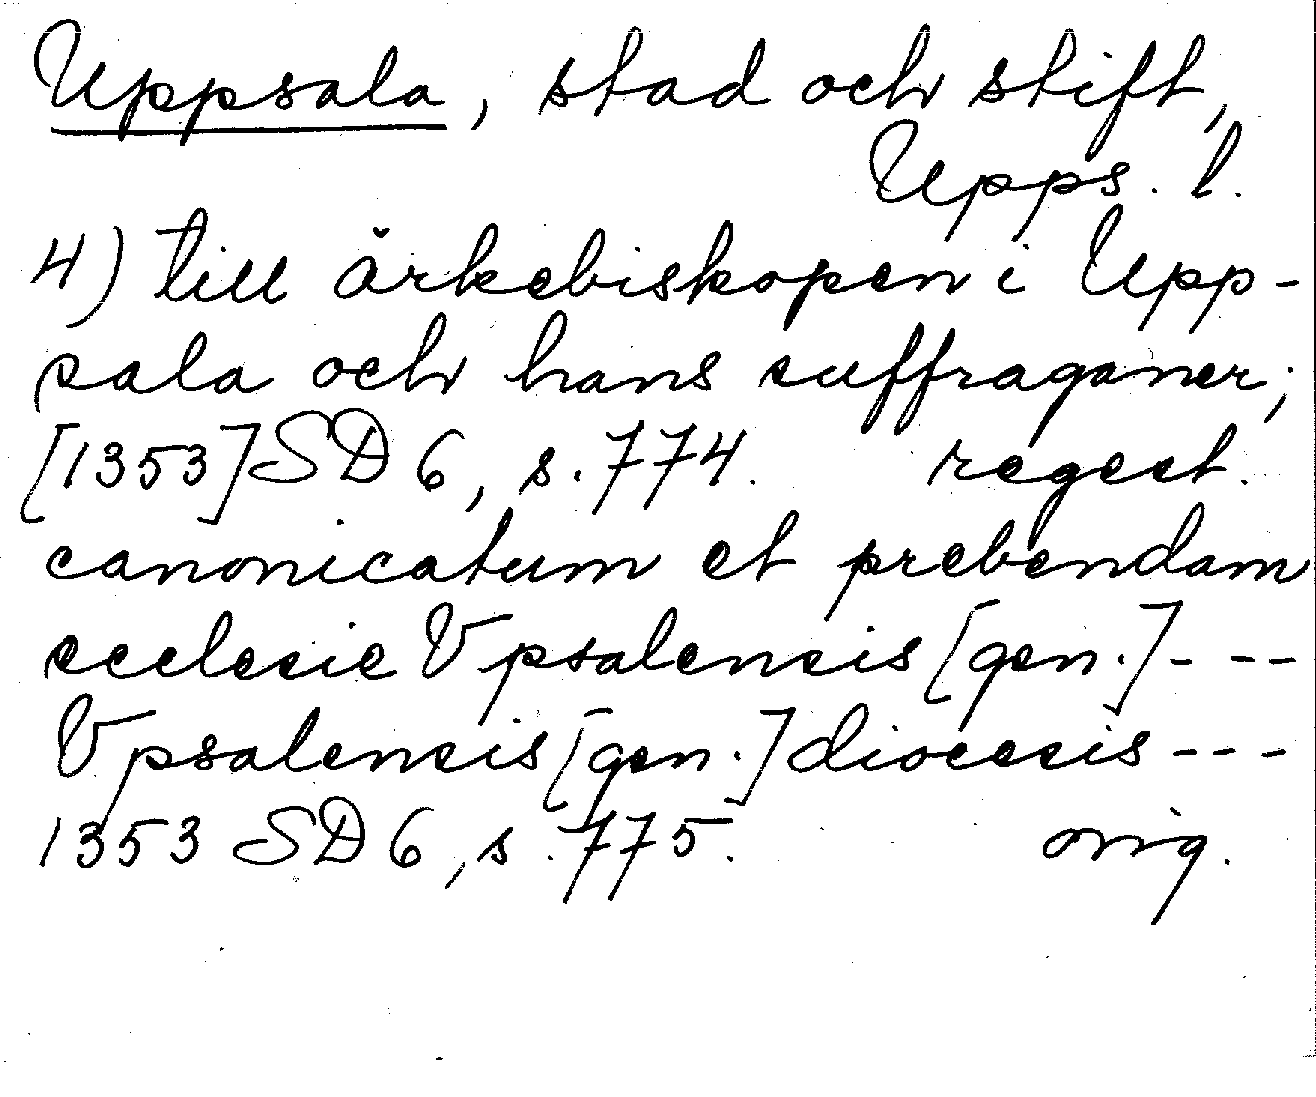 Uppsala, stad och stift,
Upps. l.
4) till ärkebiskopen i Upp-
sala och hans suffraganer;
[1353] SD 6, s. 774. regest.
canonicatum et prebendam
ecclesie Vpsalensis [gen.] - - -
Vpsalensis [gen.] diocesis - - -
1353 SD 6, s. 775. orig.